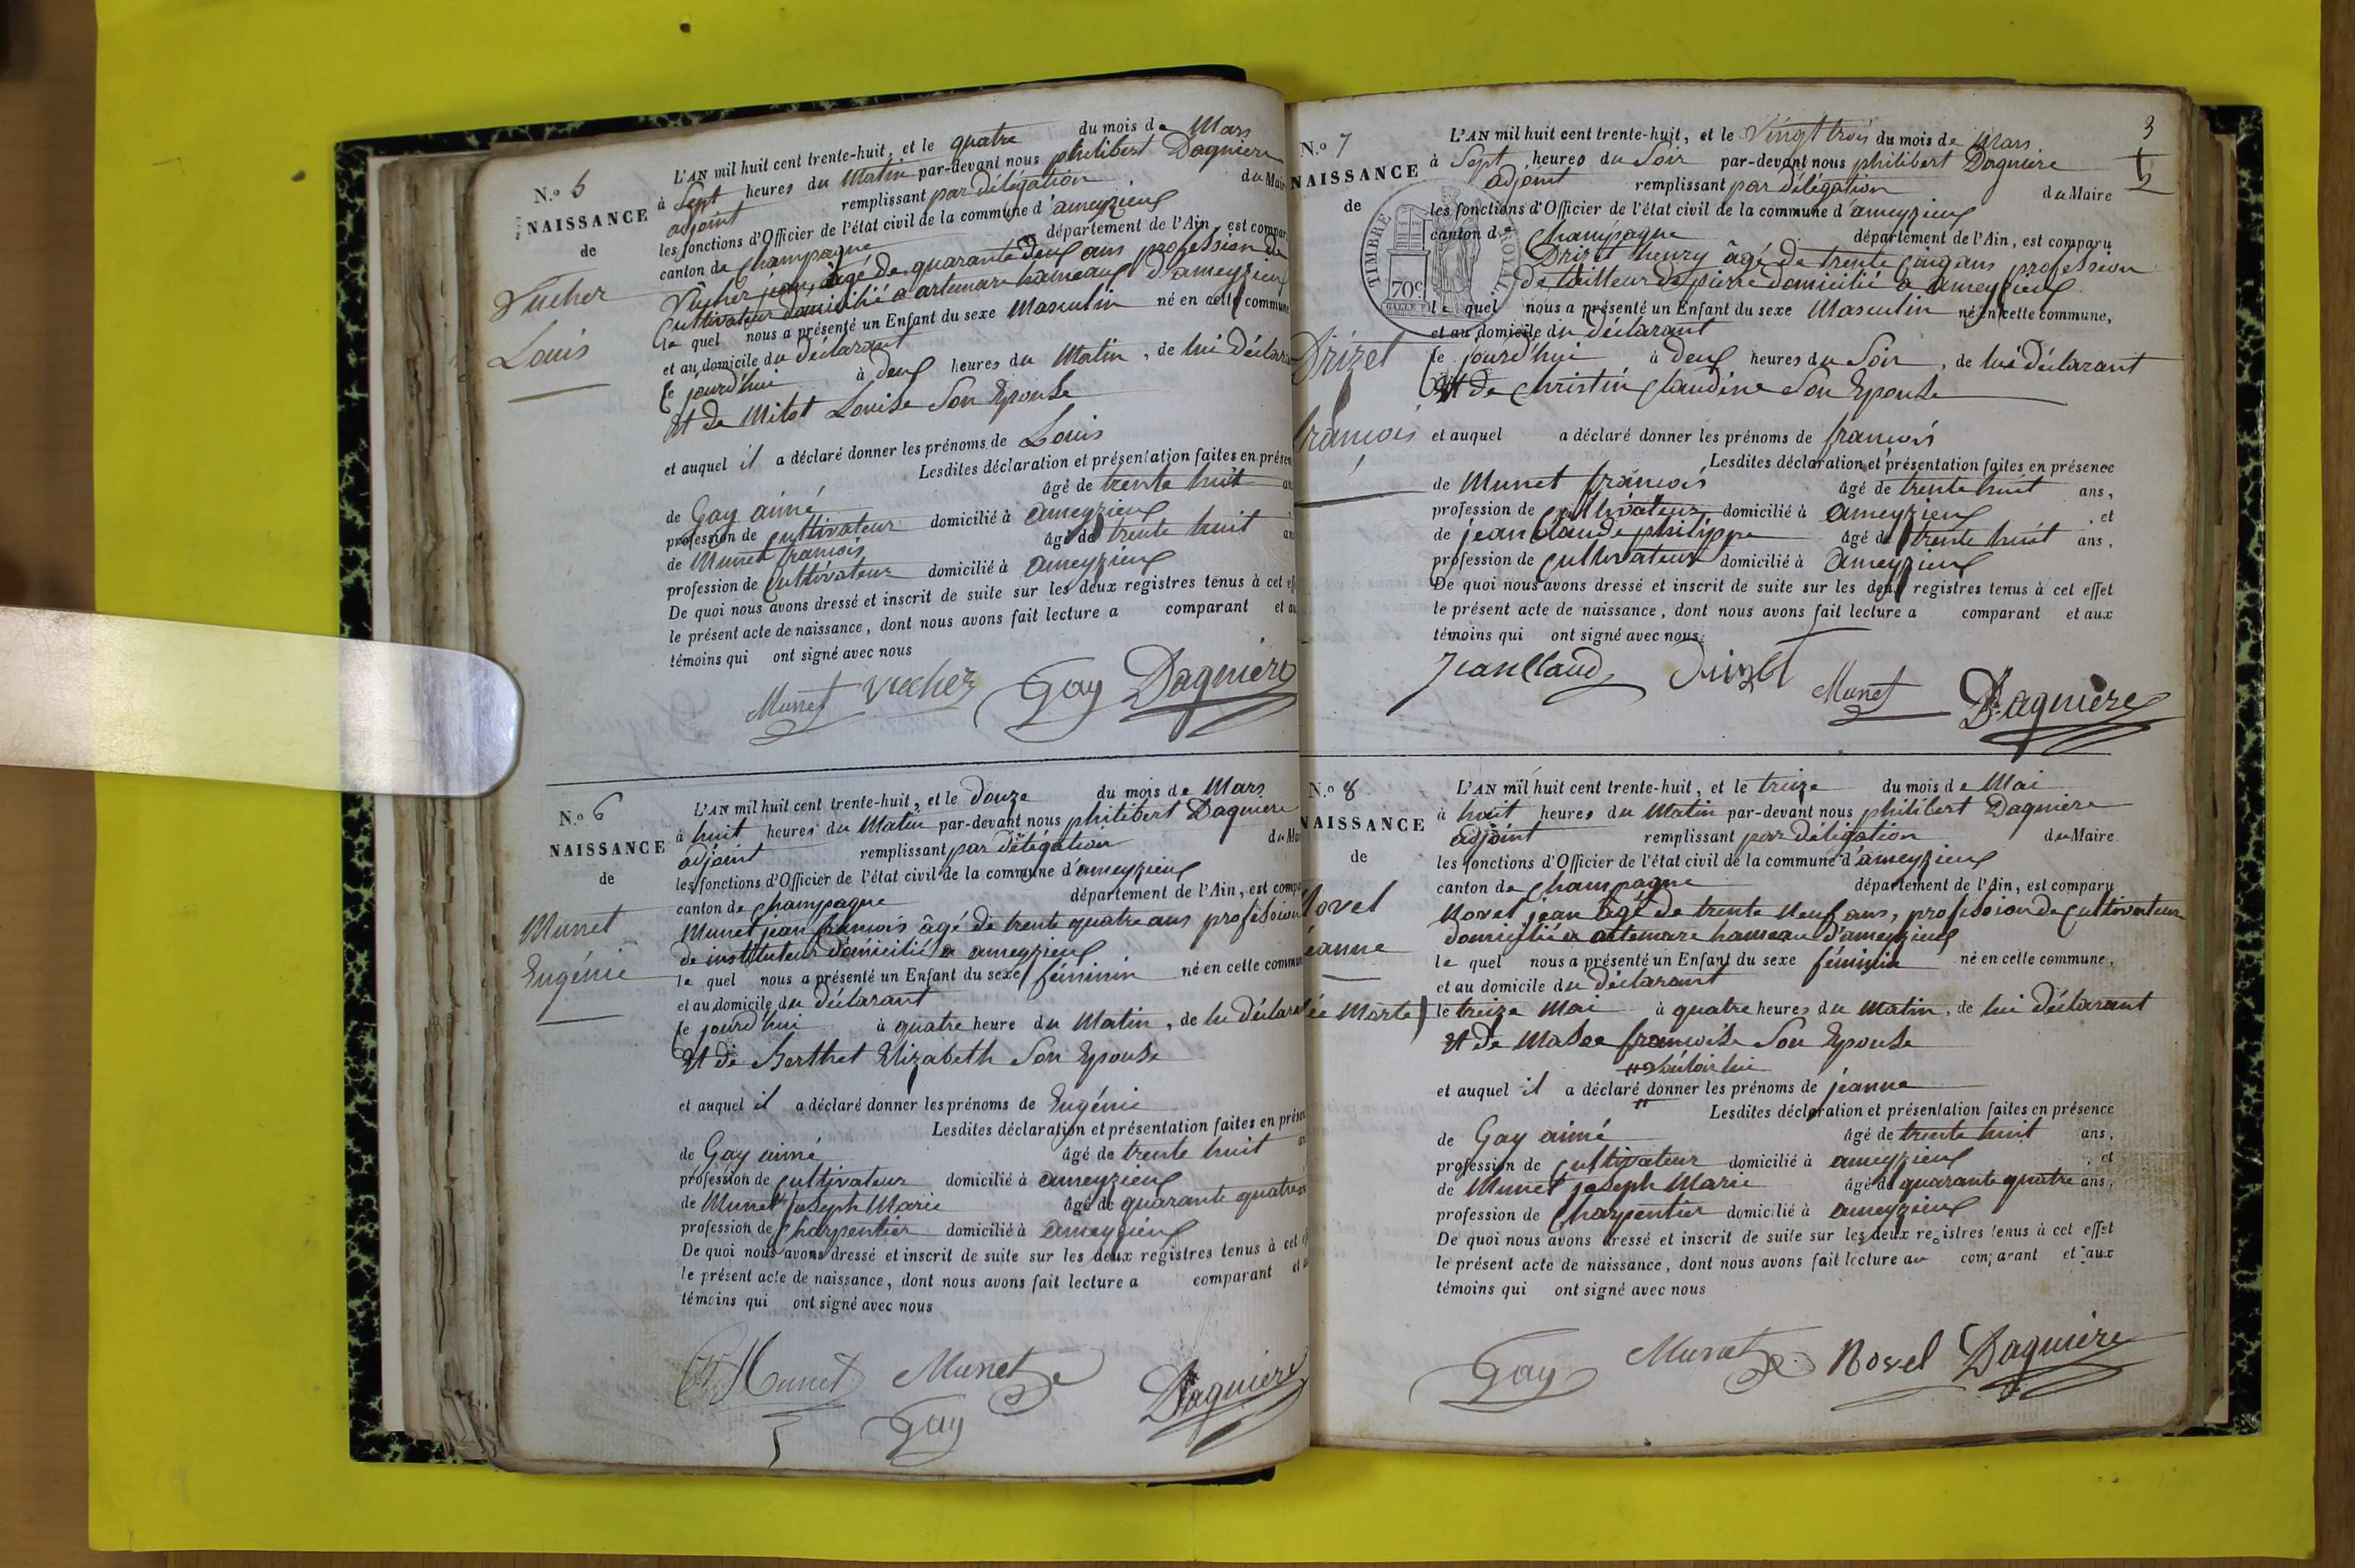 N.o 5
NAISSANCE
de
Vucher
Louis
L'AN mil huit cent trente-huit, et le quatre du mois de Mars
à Sept heures du Matin par-devant nous philibert Dagniere
adjoint remplissant par délégation du Mair
les fonctions d'Officier de l'état civil de la commune d'ameyzieux
canton de Champagne département de l'Ain, est compar
Vucher jean, âgé de quarante deux ans profession de
Cultivateur domicilié a artemare hameaux d'ameyzieux
le quel nous a présenté un Enfant du sexe Masculin né en cette commune
et au domicile du déclarant
Ce jourd'hui à deux heures du Matin, de lui déclara
Et de Milot Louise Son Epouse
et auquel il a déclaré donner les prénoms de Louis
Lesdites déclaration et présentation faites en présen
de Gay aimé âgé de trente huit an
profession de Cultivateur domicilié à ameyzieux
de Munet francois âgé de trente huit an
profession de Cultivateur domicilié à ameyzieux
De quoi nous avons dressé et inscrit de suite sur les deux registres tenus à cet eff
le présent acte de naissance, dont nous avons fait lecture a comparant et au
témoins qui ont signé avec nous
Munet Vucher Gay Dagniere
N.o 6
NAISSANCE
de
Munet
Eugénie
L'AN mil huit cent trente-huit, et le douze du mois de Mars
à huit heures du Matin par-devant nous philibert Dagniere
adjoint remplissant par délégation du Mai
les fonctions d'Officier de l'état civil de la commune d'ameyzieux
canton de Champagne département de l'Ain, est compa
Munet jean francois âgé de trente quatre ans profession
de instituteur domicilié a ameyzieux
le quel nous a présenté un Enfant du sexe féminin né en cette commun
et au domicile du déclarant
Ce jourd'hui à quatre heure du Matin, de lu déclara
Et de Berthet Elizabeth Son Epouse
et auquel il a déclaré donner les prénoms de Eugénie
Lesdites déclaration et présentation faites en présen
de Gay aimé âgé de trente huit an
profession de Cultivateur domicilié à ameyzieux
de Munet joseph Marie âgé de quarante quatre
profession de Charpentier domicilié à ameyzieux
De quoi nous avons dressé et inscrit de suite sur les deux registres tenus à cet
le présent acte de naissance, dont nous avons fait lecture a comparant et
témoins qui ont signé avec nous
Munet Munet
Gay Dagniere
3
N.o 7
NAISSANCE
de
Drizet
francois
TIMBRE ROYAL
70c
L'AN mil huit cent trente-huit, et le Vingt trois du mois de Mars
à Sept heures du Soir par-devant nous philibert Dagniere
adjoint remplissant par délégation du Maire
les fonctions d'Officier de l'état civil de la commune d'ameyzieux
canton de Champagne département de l'Ain, est comparu
Drizet henry âgé de trente cinq ans profession
de tailleur de pierre domicilié a ameyzieux
le quel nous a présenté un Enfant du sexe Masculin né en cette commune,
et au domicile du déclarant
Ce jourd'hui à deux heures du Soir, de lui déclarant
Et de Christin Claudine Son Epouse
et auquel a déclaré donner les prénoms de francois
Lesdites déclaration et présentation faites en présence
de Munet francois âgé de trente huit ans,
profession de Cultivateur domicilié à ameyzieux, et
de jean Claude philippe âgé de trente huit ans,
profession de Cultivateur domicilié à ameyzieux
De quoi nous avons dressé et inscrit de suite sur les deux registres tenus à cet effet
le présent acte de naissance, dont nous avons fait lecture a comparant et aux
témoins qui ont signé avec nous.
Jean Claud Drizet Munet Dagniere
N.o 8
NAISSANCE
de
Novel
jeanne
L'AN mil huit cent trente-huit, et le treize du mois de Mai
à huit heures du Matin par-devant nous philibert Dagniere
adjoint remplissant par délégation du Maire
les fonctions d'Officier de l'état civil de la commune d'ameyzieux
canton de Champagne département de l'Ain, est comparu
Novel jean âgé de trente Neuf ans, profession de Cultivateur
domicilié a artemare hameau d'ameyzieux
le quel nous a présenté un Enfant du sexe féminin né en cette commune,
et au domicile du déclarant
ée Morte) le treize Mai à quatre heures du Matin, de lui déclarant
Et de Masse francoise Son Epouse
# Vouloir lui
et auquel il a déclaré donner les prénoms de jeanne
Lesdites déclaration et présentation faites en présence
de Gay aimé âgé de trente huit ans,
profession de Cultivateur domicilié à ameyzieux, et
de Munet joseph Marie âgé de quarante quatre ans,
profession de Charpentier domicilié à ameyzieux
De quoi nous avons dressé et inscrit de suite sur les deux registres tenus à cet effet
le présent acte de naissance, dont nous avons fait lecture au comparant et aux
témoins qui ont signé avec nous
Gay Munet Novel Dagniere